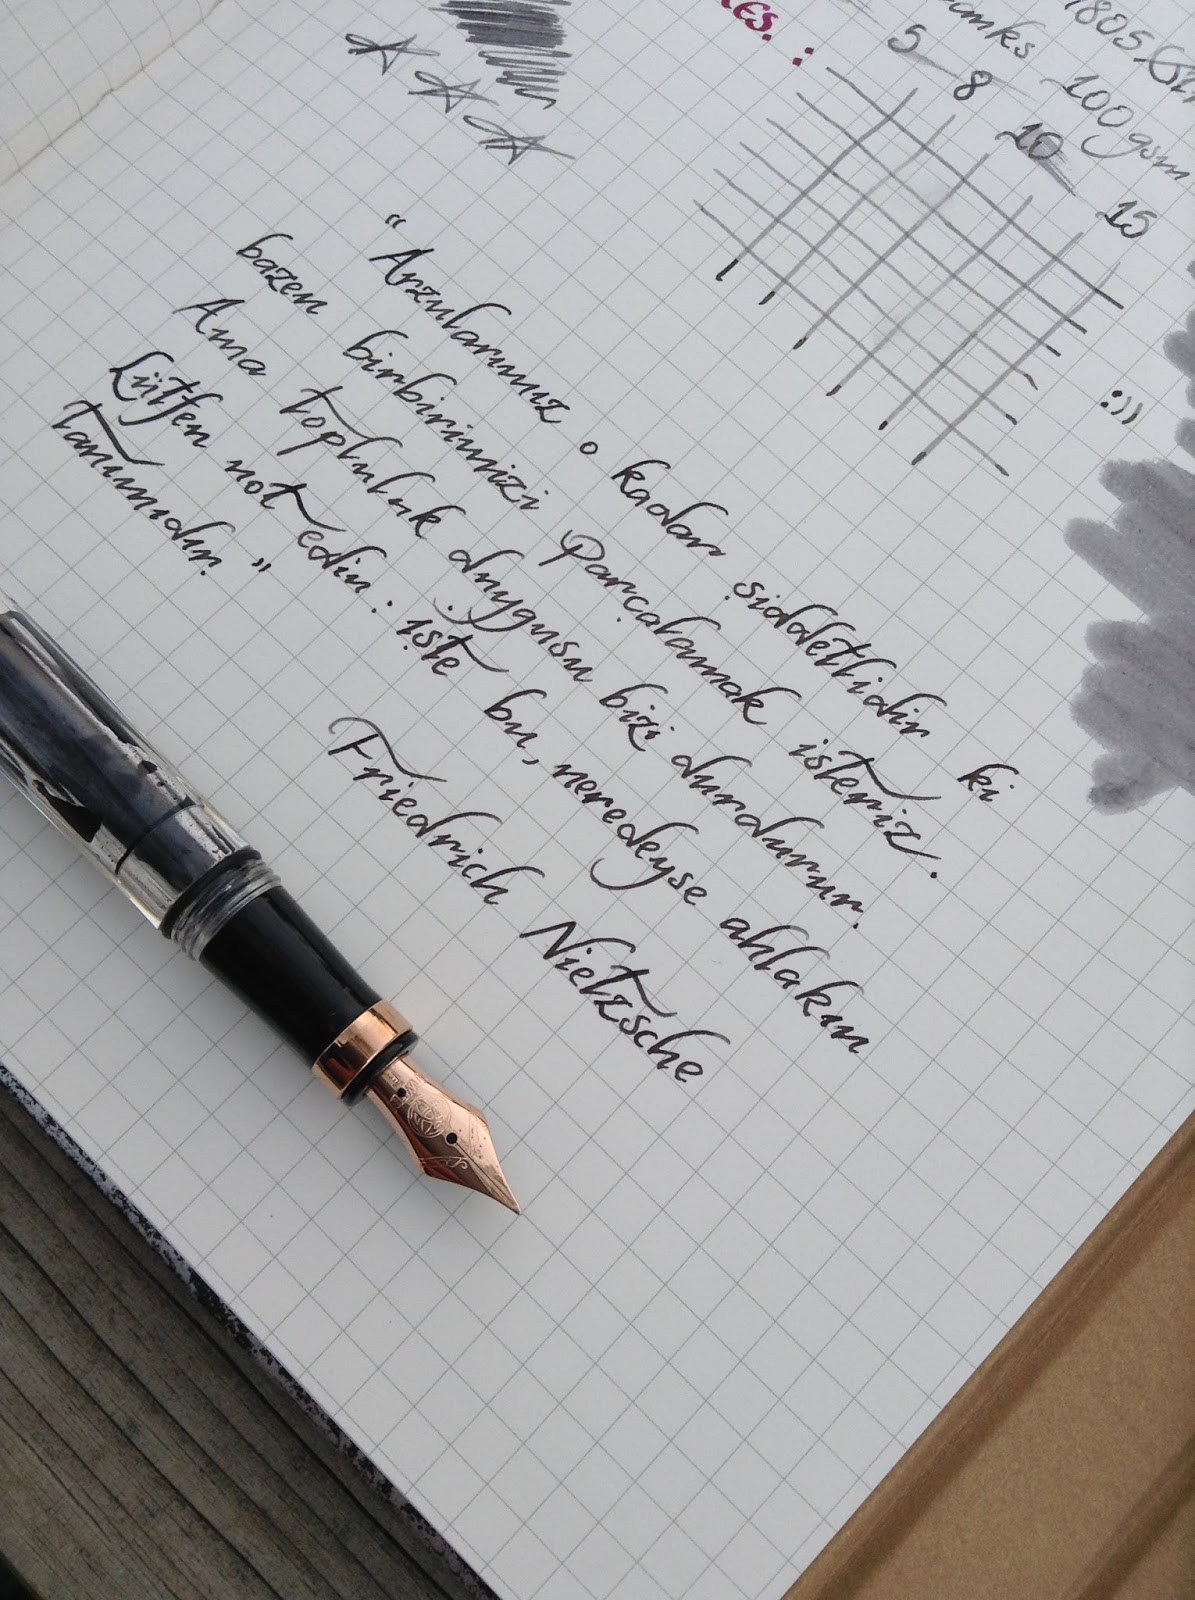 5 8 10 15
100 gsm
:))
"Arzularımız o kadar şiddetlidir ki
bazen birbirimizi Parçalamak isteriz.
Ama topluluk duygusu bizi durdurur.
Lütfen not edin: işte bu, neredeyse ahlakın
tanımıdır."
Friedrich Nietzsche